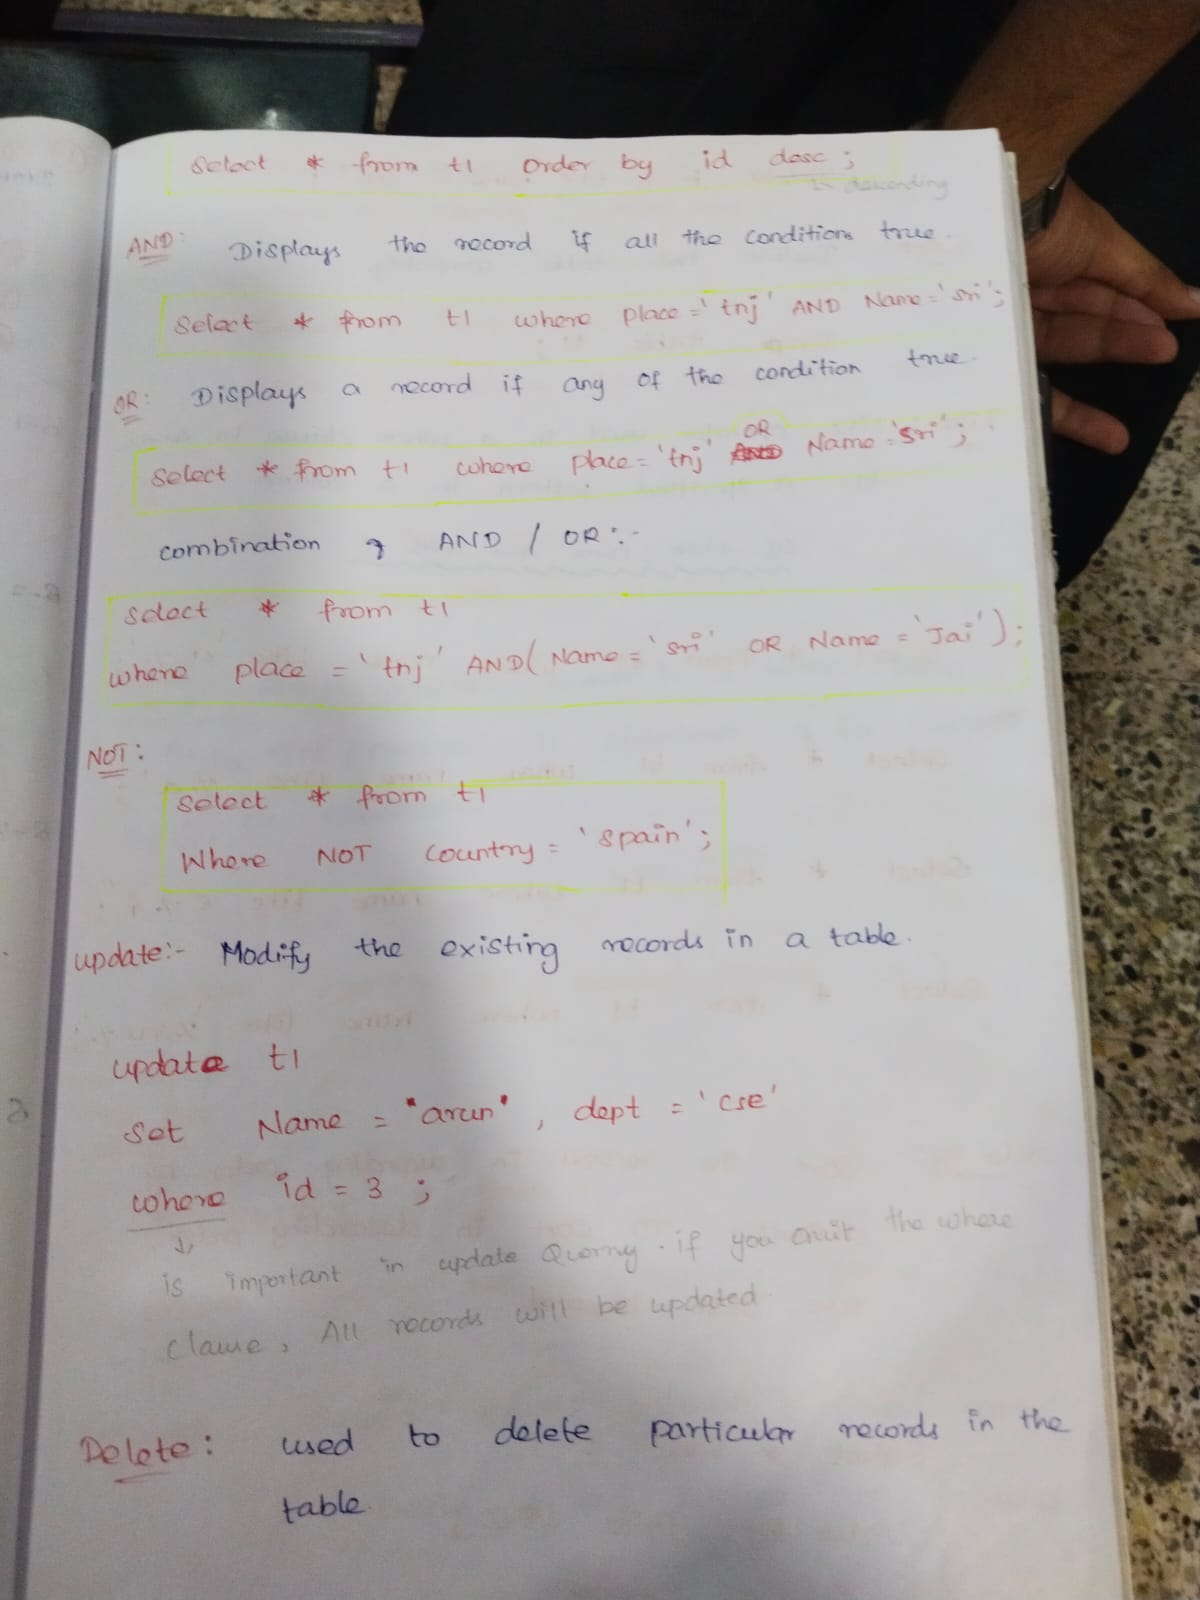 Select * from t1 order by id desc ;
↳ descending
AND: Displays the record if all the conditions true.
Select * from t1 where place = 'tnj' AND Name = 'sri';
OR: Displays a record if any of the condition true.
OR
Select * from t1 where place = 'tnj' AND Name = 'sri' ;
combination of AND / OR :-
Select * from t1
where place = 'tnj' AND( Name = 'sri' OR Name = 'Jai');
NOT :
Select * from t1
Where NOT Country = 'spain';
update:- Modify the existing records in a table.
update t1
Set Name = "arun" , dept = 'cse'
where id = 3 ;
is important in update Query . if you omit the where
clause , All records will be updated.
Delete : used to delete particular records in the
table.